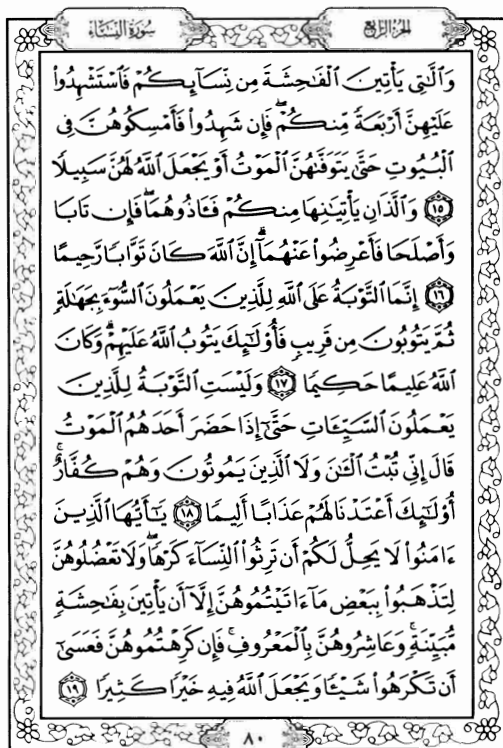 سُورَةُ النِّسَاءِ
الجُزْءُ الرَّابِعُ
وَالَّـٰتِى يَأْتِينَ الْفَـٰحِشَةَ مِن نِّسَآئِكُمْ فَاسْتَشْهِدُوا۟
عَلَيْهِنَّ أَرْبَعَةً مِّنكُمْ ۖ فَإِن شَهِدُوا۟ فَأَمْسِكُوهُنَّ فِى
الْبُيُوتِ حَتَّىٰ يَتَوَفَّىٰهُنَّ الْمَوْتُ أَوْ يَجْعَلَ اللَّهُ لَهُنَّ سَبِيلًا
١٥ وَالَّذَانِ يَأْتِيَـٰنِهَا مِنكُمْ فَـَٔاذُوهُمَا ۖ فَإِن تَابَا
وَأَصْلَحَا فَأَعْرِضُوا۟ عَنْهُمَآ ۗ إِنَّ اللَّهَ كَانَ تَوَّابًا رَّحِيمًا
١٦ إِنَّمَا التَّوْبَةُ عَلَى اللَّهِ لِلَّذِينَ يَعْمَلُونَ السُّوٓءَ بِجَهَـٰلَةٍ
ثُمَّ يَتُوبُونَ مِن قَرِيبٍ فَأُو۟لَـٰٓئِكَ يَتُوبُ اللَّهُ عَلَيْهِمْ ۗ وَكَانَ
اللَّهُ عَلِيمًا حَكِيمًا ١٧ وَلَيْسَتِ التَّوْبَةُ لِلَّذِينَ
يَعْمَلُونَ السَّيِّـَٔاتِ حَتَّىٰٓ إِذَا حَضَرَ أَحَدَهُمُ الْمَوْتُ
قَالَ إِنِّى تُبْتُ الْـَٔـٰنَ وَلَا الَّذِينَ يَمُوتُونَ وَهُمْ كُفَّارٌ ۚ
أُو۟لَـٰٓئِكَ أَعْتَدْنَا لَهُمْ عَذَابًا أَلِيمًا ١٨ يَـٰٓأَيُّهَا الَّذِينَ
ءَامَنُوا۟ لَا يَحِلُّ لَكُمْ أَن تَرِثُوا۟ النِّسَآءَ كَرْهًا ۖ وَلَا تَعْضُلُوهُنَّ
لِتَذْهَبُوا۟ بِبَعْضِ مَآ ءَاتَيْتُمُوهُنَّ إِلَّآ أَن يَأْتِينَ بِفَـٰحِشَةٍ
مُّبَيِّنَةٍ ۚ وَعَاشِرُوهُنَّ بِالْمَعْرُوفِ ۚ فَإِن كَرِهْتُمُوهُنَّ فَعَسَىٰٓ
أَن تَكْرَهُوا۟ شَيْـًٔا وَيَجْعَلَ اللَّهُ فِيهِ خَيْرًا كَثِيرًا ١٩
٨٠